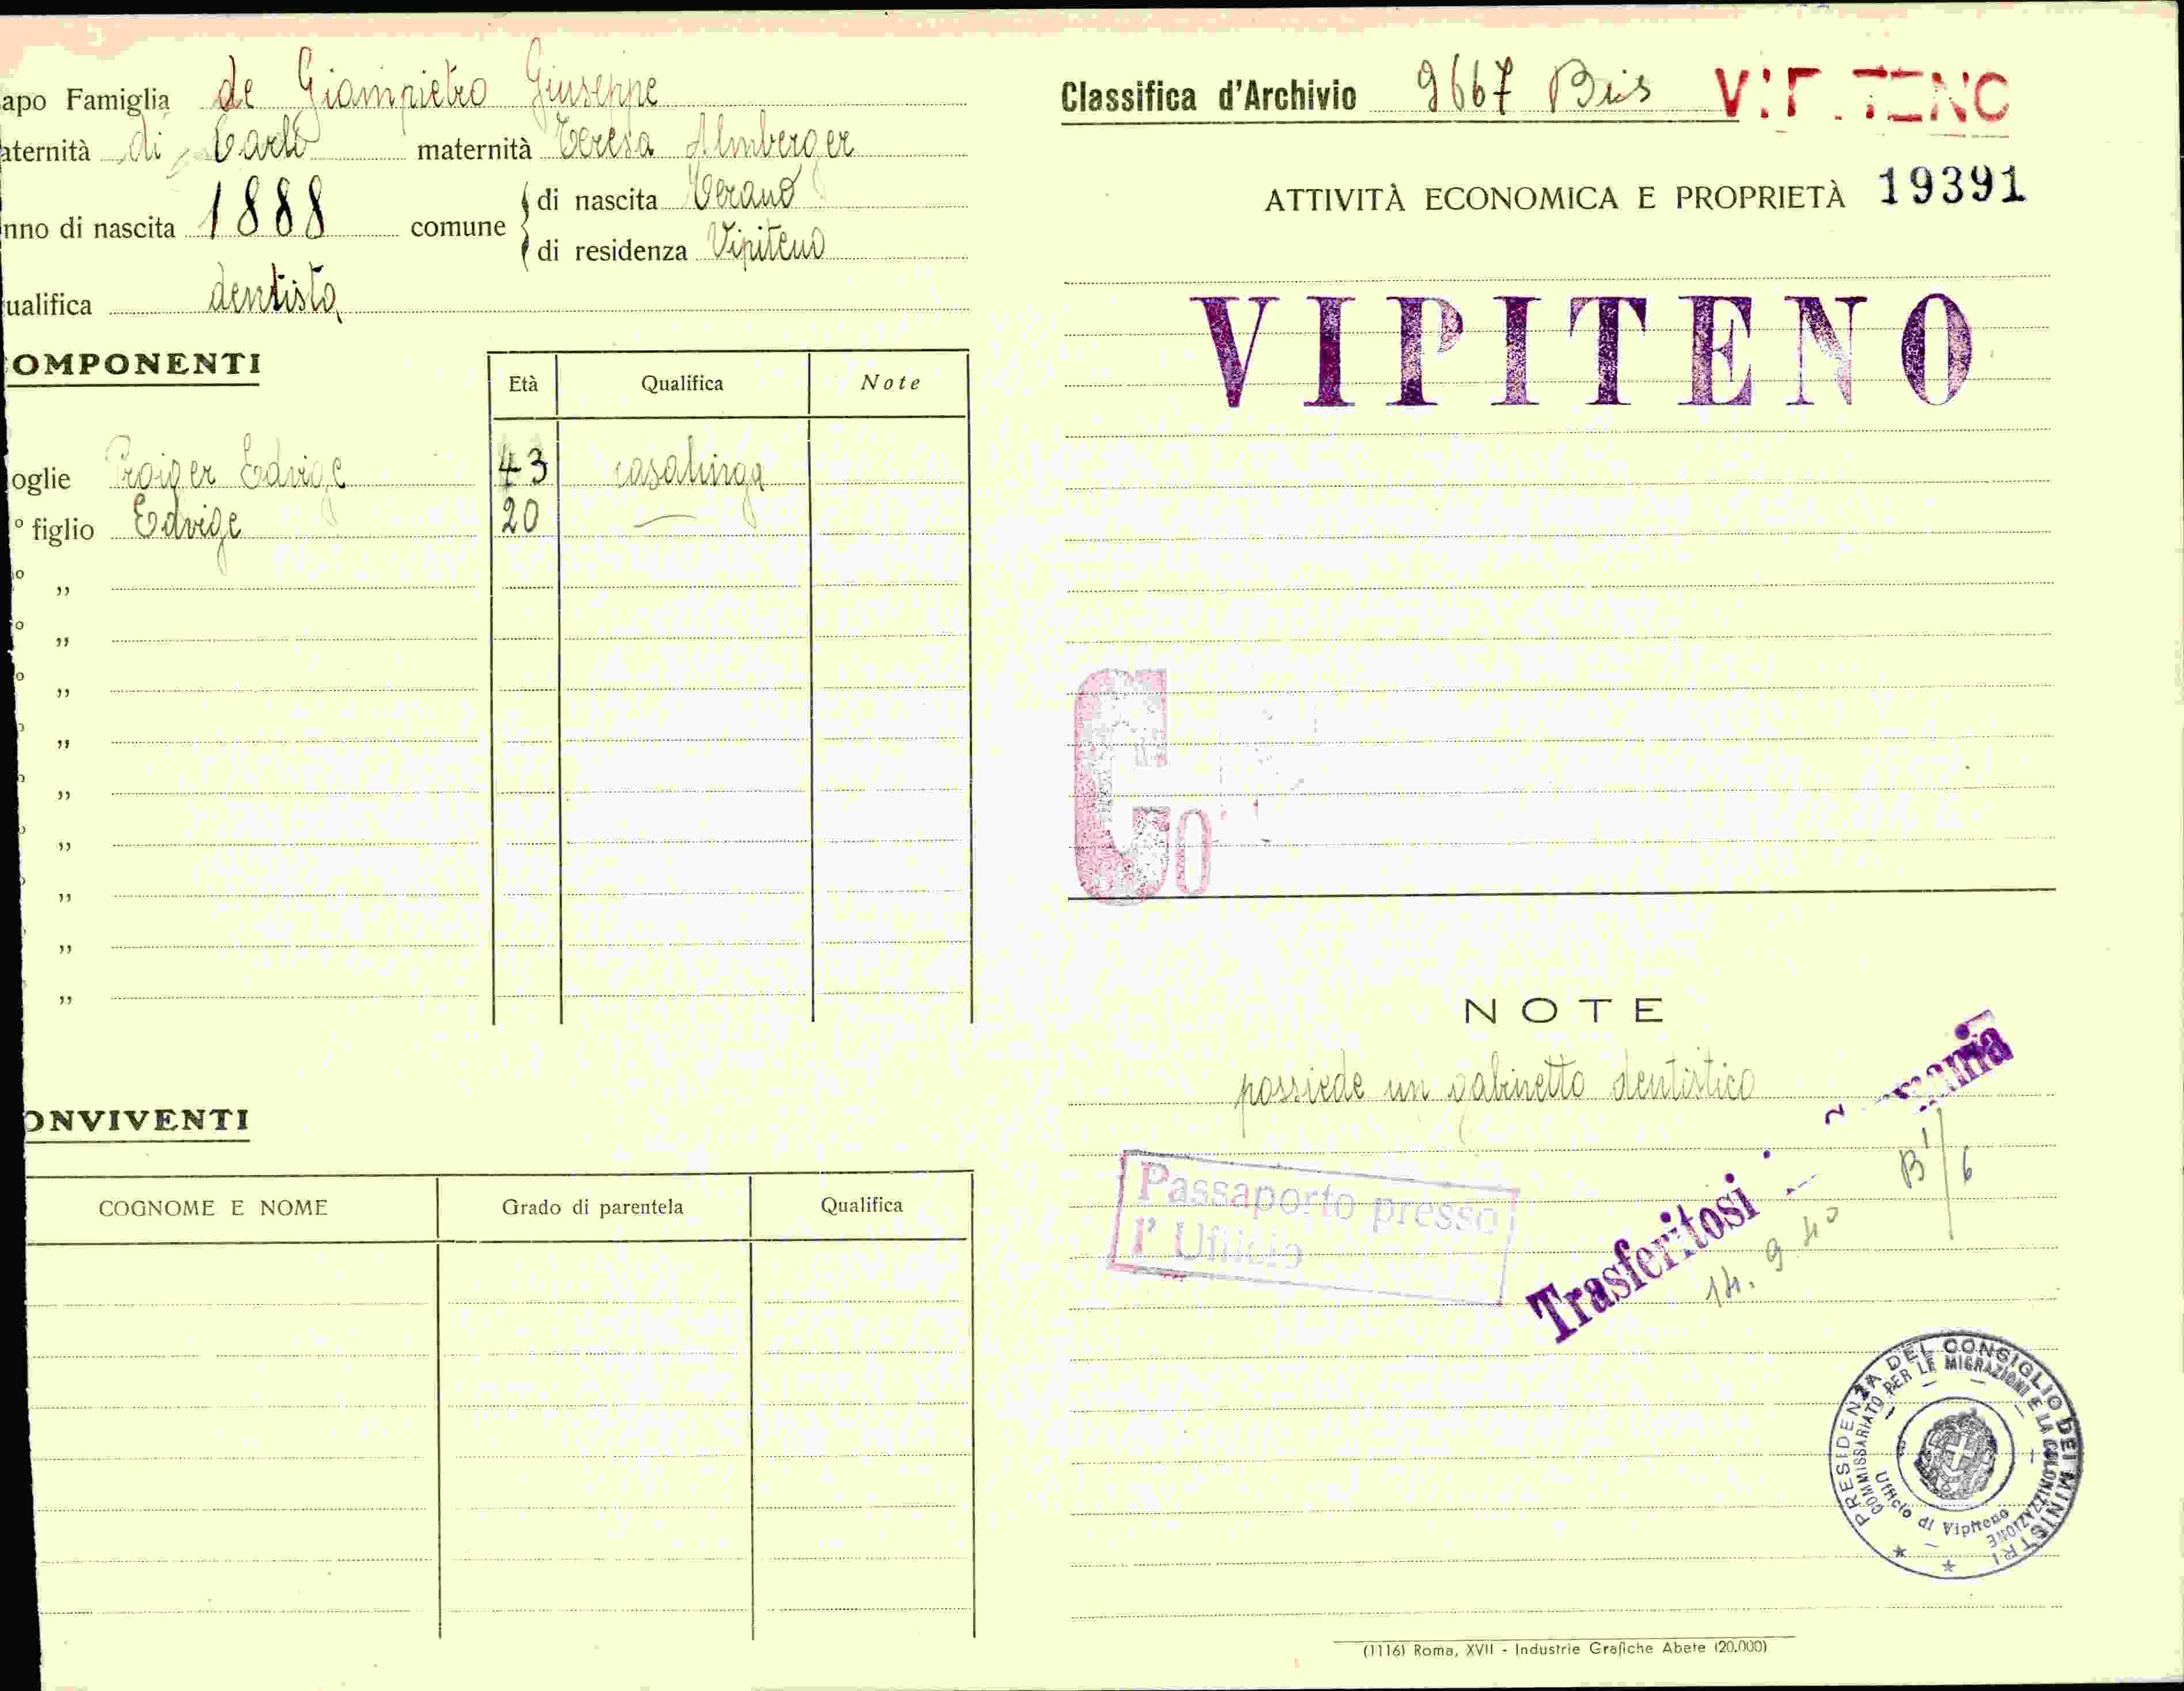 apo Famiglia de Giampietro Giuseppe
aternità di Carlo maternità Teresa Almberger
nno di nascita 1888 comune di nascita Verano
di residenza Vipiteno
ualifica dentista
OMPONENTI
Età Qualifica Note
oglie Edvige 43 casalinga
° figlio Edvige 20
° „
° „
° „
„
„
„
„
„
„
ONVIVENTI
COGNOME E NOME Grado di parentela Qualifica
Classifica d'Archivio 9667 Bis VIPITENO
ATTIVITÀ ECONOMICA E PROPRIETÀ 19391
VIPITENO
G
NOTE
possiede un gabinetto dentistico
Passaporto presso
l'Ufficio
Trasferitosi
14.9.40
B 6
PRESIDENZA DEL CONSIGLIO DEI MINISTRI
COMMISSARIATO PER LE MIGRAZIONI E LA COLONIZZAZIONE
Ufficio di Vipiteno
(1116) Roma, XVII - Industrie Grafiche Abete (20.000)